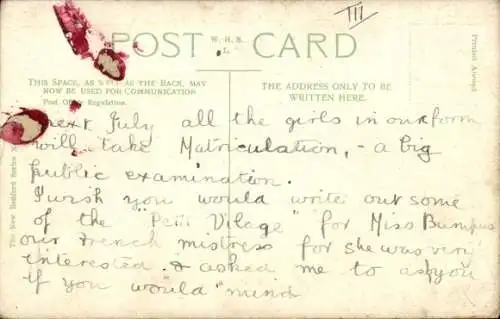 III
POST CARD
W.H.S.
L.
THIS SPACE, AS WELL AS THE BACK, MAY
NOW BE USED FOR COMMUNICATION
Post Office Regulation.
THE ADDRESS ONLY TO BE
WRITTEN HERE.
Printed Abroad
The New Medford Series
next July all the girls in our form
will take Matriculation, - a big
public examination.
I wish you would write out some
of the "Petit Vilage" for Miss Bumpus
our French mistress for she was very
interested & asked me to ask you
if you would mind